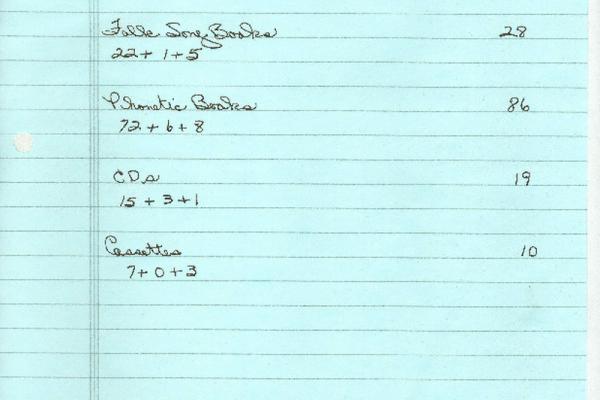 Folk Song Books 28
22 + 1 + 5
Phonetic Books 86
72 + 6 + 8
CDs 19
15 + 3 + 1
Cassettes 10
7 + 0 + 3